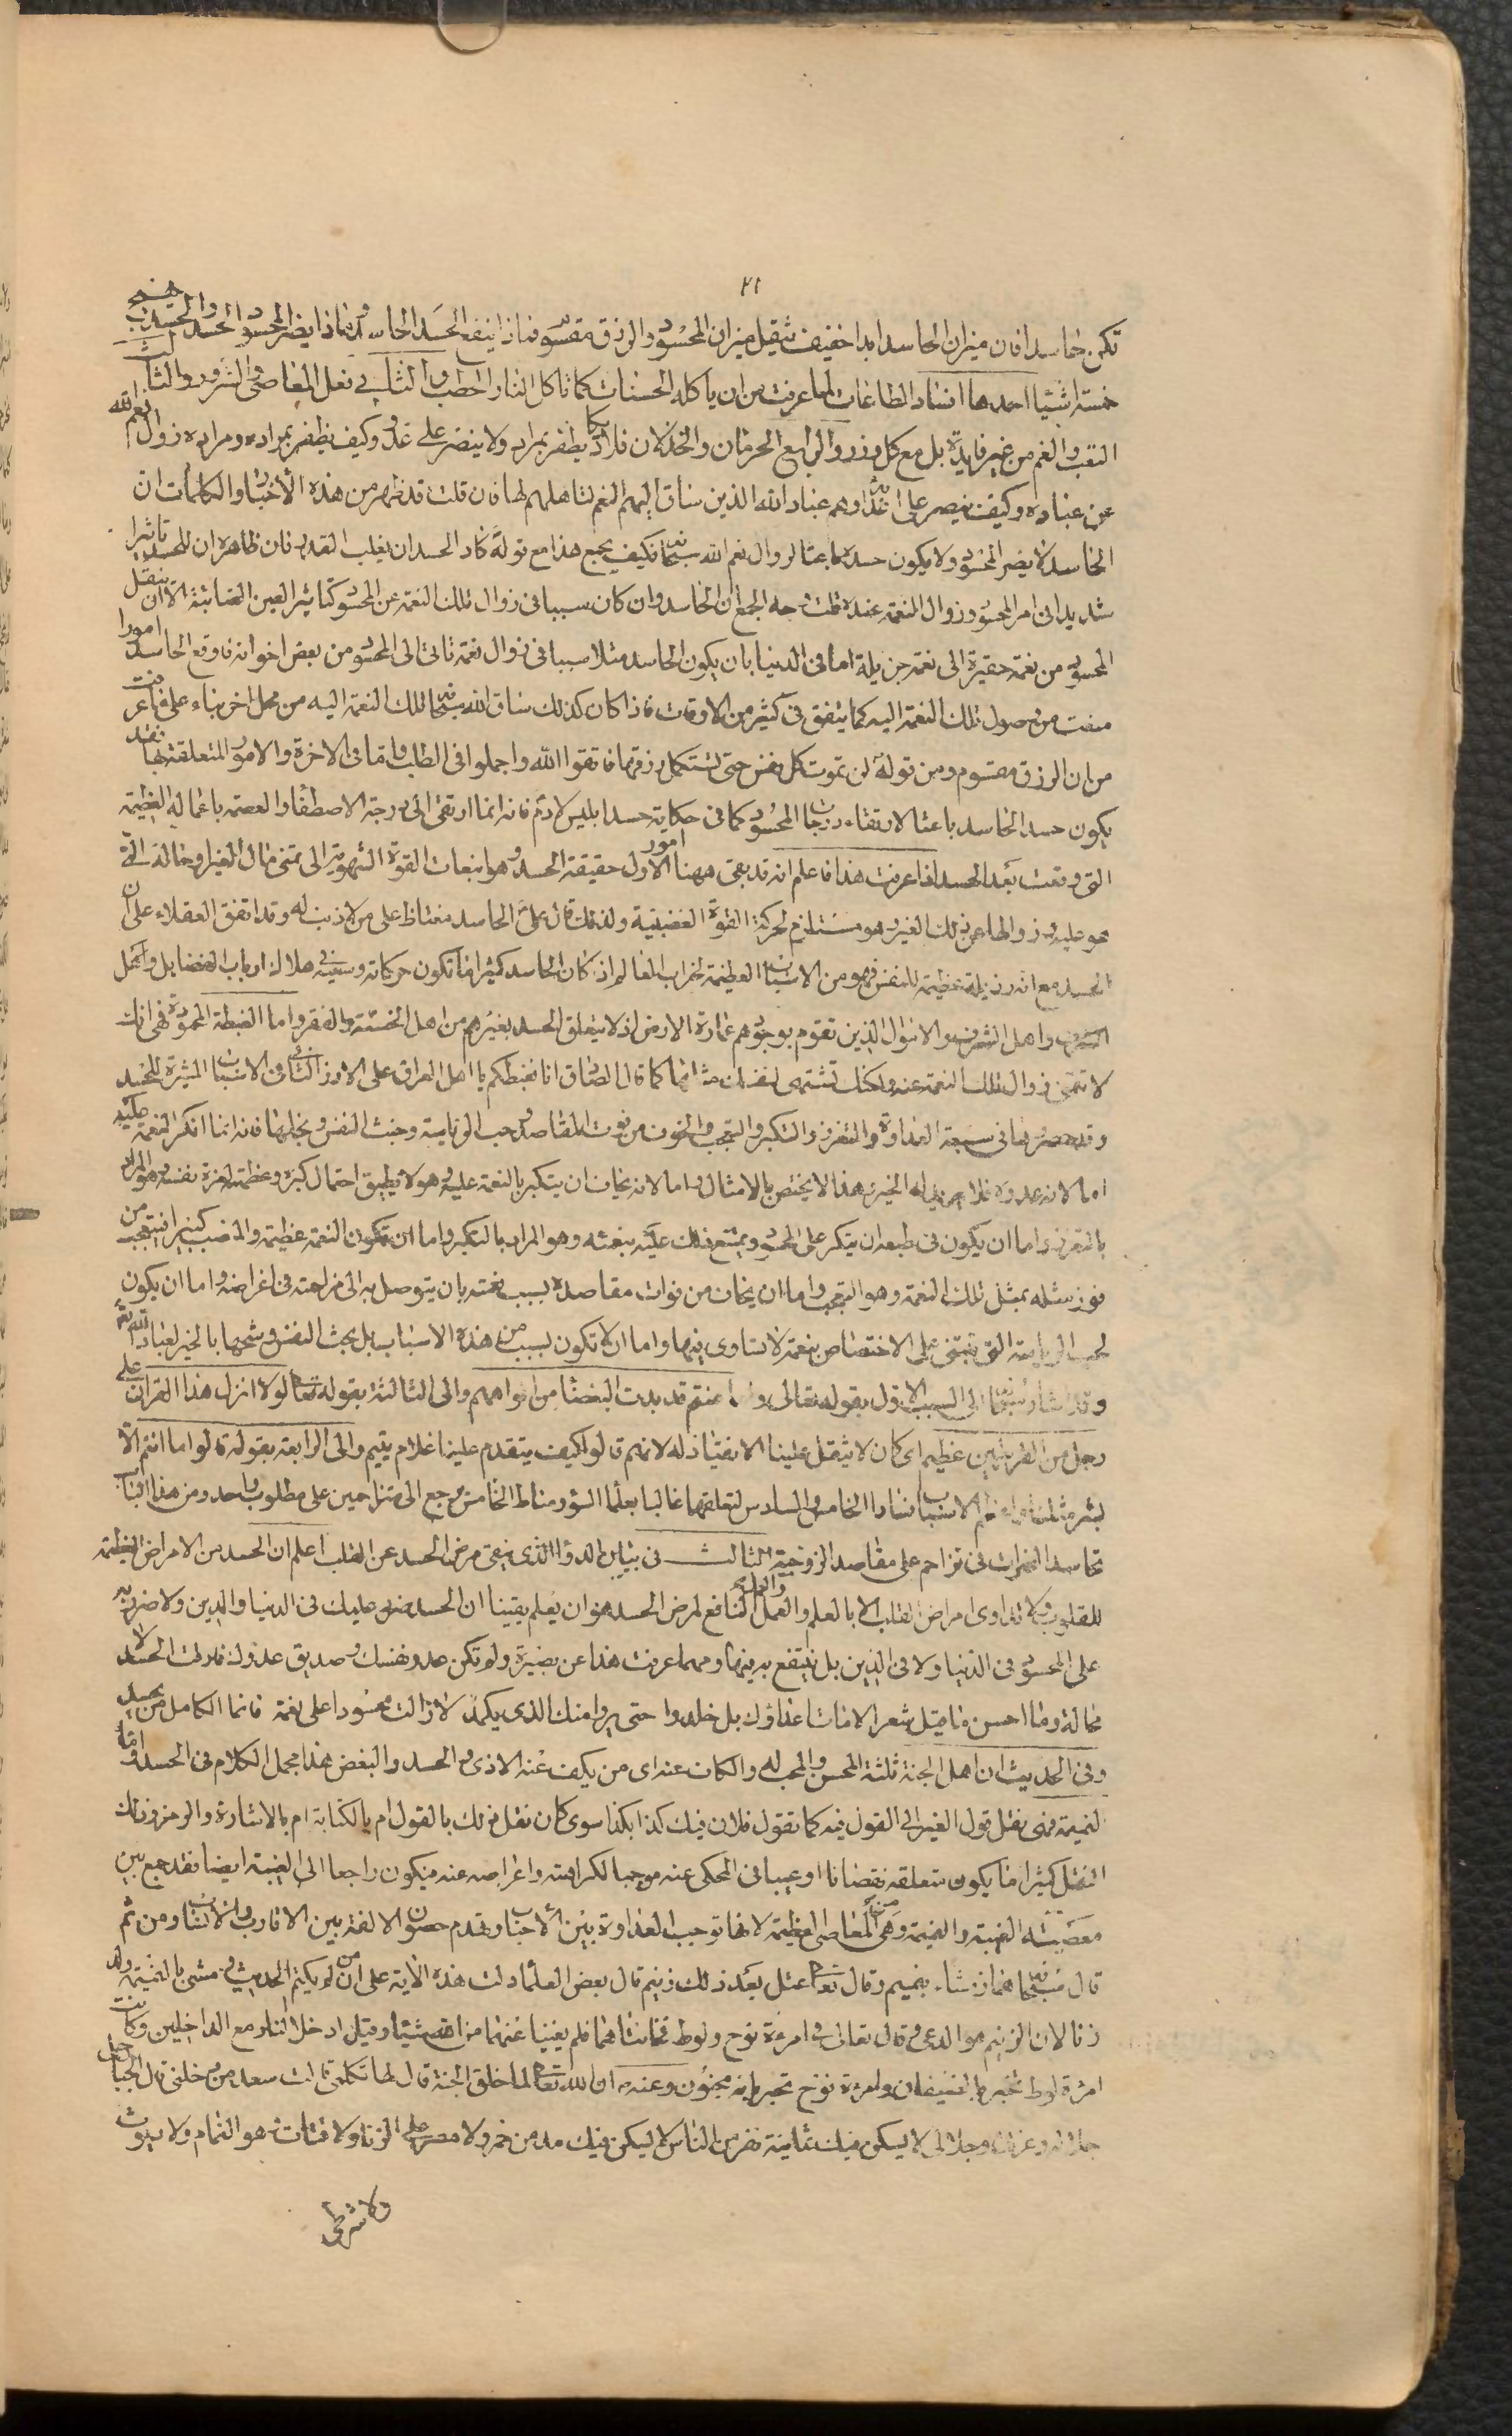 ٢١
تكن حاسدا فان ميزان الحاسد ابدا خفيف بثقيل ميزان المحسود والرزق مقسوم فماذا ينفع الحسد الحاسد وماذا يضر المحسود الحسد والحسد ينتج
خمسة اشياء احدها افساد الطاعات لما عرفت من ان ياكل الحسنات كما تاكل النار الحطب والثاني فعل المعاصي والشرور والثالث
التعب والغم من غير فايدة بل مع كل وزر والرابع الحرمان والخذلان فلا يكاد يظفر بمراد ولا ينصر على عدو وكيف يظفر بمراده ومراده زوال نعم الله
عن عباده وكيف ينصر على اعدائه وهم عباد الله الذين ساق اليهم النعم لتاهلهم لها فان قلت قد ظهر من هذه الأخبار والكلمات ان
الحاسد لا يضر المحسود ولا يكون حسده باعثا لزوال نعم الله سبحانه فكيف يجمع هذا مع قوله كاد الحسد ان يغلب القدر فان ظاهره ان للحسد تاثيرا
شديدا في امر المحسود وزوال النعمة عنده قلت وجه الجمع ان الحاسد وان كان سببا في زوال تلك النعمة عن المحسود كتاثير العين الصائبة الا ان ينتقل
المحسود من نعمة حقيرة الى نعمة جزيلة اما في الدنيا بان يكون الحاسد مثلا سببا في زوال نعمة تاتي الى المحسود من بعض اخوانه فاوقع الحاسد امورا
منعت من وصول تلك النعمة اليه كما يتفق في كثير من الاوقات فاذا كان كذلك ساق الله سبحانه تلك النعمة اليه من محل اخر بناء على ما عرفت
من ان الرزق مقسوم ومن قوله لن تموت كل نفس حتى تستكمل رزقها فاتقوا الله واجملوا في الطلب واما في الاخرة والامور المتعلقة بها فقد
يكون حسد الحاسد باعثا لارتقاء درجات المحسود كما في حكاية حسد ابليس لادم فانه انما ارتقى الى درجة الاصطفاء والعصمة باعماله العظيمة
التي وقعت بعد الحسد اذا عرفت هذا فاعلم انه قد بقى ههنا امور الاول حقيقة الحسد وهو انبعاث القوة الشهوية الى تمنى مال الغير او حاله التي
هو عليها وزوالها عن ذلك الغير وهو مستلزم لحركة القوة الغضبية ولذلك قال علي الحاسد مغتاظ على من لا ذنب له وقد اتفق العقلاء على ان
الحسد مع انه رذيلة عظيمة للنفس فهو من الاسباب العظيمة لخراب العالم اذ كان الحاسد كثيرا ما تكون حركاته وسعيه في هلاك ارباب الفضايل واهل
الشرف واهل الشرف والاموال الذين تقوم بوجودهم عمارة الارض اذ لا يتعلق الحسد بغيرهم من اهل الخسة والفقر واما الغبطة المحمودة فهي انك
لا تتمنى زوال تلك النعمة عنه ولكنك تشتهى لنفسك مثلها كما قال الصادق انا نغبطكم يا اهل العراق على الارز الثاني في الاسباب المثيرة للحسد
وقد حصروها في سبعة العداوة والتعزز والتكبر والتعجب والخوف من فوت المقاصد وحب الرياسة وخبث النفس وبخلها فانه انما انكر النعمة عليه
اما لانه عدوه فلا يريد له الخير وهذا لا يختص بالامثال واما لانه يخاف ان يتكبر بالنعمة عليه وهو لا يطيق احتمال كبره وعظمته لعزة نفسه وهو المراد
بالتعزز واما ان يكون في طبعه ان يتكبر على المحسود ويمتنع ذلك عليه بنعمته وهو المراد بالتكبر واما ان تكون النعمة عظيمة والمنصب كبيرا فيتعجب من
فوز مثله بمثل تلك النعمة وهو التعجب واما ان يخاف من فوات مقاصده بسبب نعمته بان يتوصل به الى مزاحمته في اغراضه واما ان يكون
لحب الرياسة التي تبتنى على الاختصاص بنعمة لا يساوى فيها واما ان لا تكون بسبب من هذه الاسباب بل لخبث النفس وشحها بالخير لعباد الله تعالى
وقد اشار سبحانه الى السبب الاول بقوله تعالى ودوا ما عنتم قد بدت البغضاء من افواههم والى الثالثة بقوله تعالى لولا انزل هذا القرآن على
رجل من القريتين عظيم اى كان لا يثقل علينا الانقياد له لانهم قالوا كيف يتقدم علينا غلام يتيم والى الرابعة بقوله قالوا ما انتم الا
بشر مثلنا واعظم الاسباب فسادا الخامس والسادس لتعلقهما غالبا بعلماء السوء ومناط الخامس يرجع الى متزاحمين على مطلوب واحد ومن هذا الباب
تحاسد الضرات في تزاحم على مقاصد الزوجية الثالث في بيان الدواء الذي ينفى مرض الحسد عن القلب اعلم ان الحسد من الامراض العظيمة
للقلوب ولا تداوى امراض القلب الا بالعلم والعمل والعلم النافع لمرض الحسد هو ان يعلم يقينا ان الحسد ضرر عليك في الدنيا والدين ولا ضرر به
على المحسود في الدنيا ولا في الدين بل ينتفع به فيهما ومهما عرفت هذا عن بصيرة ولم تكن عدو نفسك وصديق عدوك فارقت الحسد لا
محالة وما احسن ما قيل شعر لا مات اعداؤك بل خلدوا حتى يروا منك الذي يكمد لا زالت محسودا على نعمة فانما الكامل من يحسد
وفي الحديث ان اهل الجنة ثلثة المحسن والمحب له والكاف عنه اى من يكف عنه الاذى والحسد والبغض هذا مجمل الكلام في الحسد واما
النميمة فهى نقل قول الغير الى المقول فيه كما تقول فلان فيك كذا بكذا سوى كان نقل ذلك بالقول ام بالكتابة ام بالاشارة والرمز وذلك
النقل كثيرا ما يكون متعلقه نقصانا او عيبا في المحكى عنه موجبا لكراهته واعراضه عنه فيكون راجعا الى الغيبة ايضا فقد جمع بين
معصيته الغيبة والنميمة وهى من المعاصى العظيمة لانها توجب العداوة بين الاحباب وتهدم حصون الالفة بين الاقارب والانساب ومن ثم
قال سبحانه هماز مشاء بنميم وقال تعالى عتل بعد ذلك زنيم قال بعض العلماء دلت هذه الاية على ان من لم يكتم الحديث ومشى بالنميمة ولد
زنا لان الزنيم هو الدعى وقال تعالى في امرءة نوح ولوط فخانتاهما فلم يغنيا عنهما من الله شيئا وقيل ادخلا النار مع الداخلين وكانت
امرءة لوط تخبر بالضيفان وامرءة نوح تخبر بانه مجنون وعنه ص ان الله تعالى لما خلق الجنة قال لها تكلمى قالت سعد من دخلنى قال الجبار جل
جلاله وعزتى وجلالى لا يسكن فيك ثمانية نفر من الناس لا يسكن فيك مدمن خمر ولا مصر على الزنا ولا قتات وهو النمام ولا ديوث
ولا شرطى